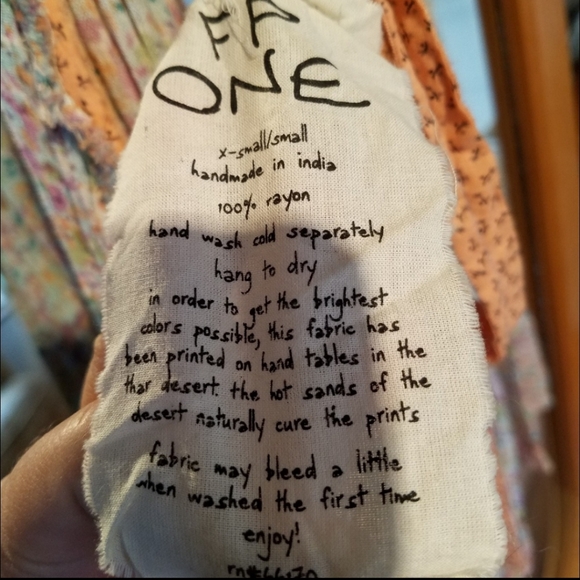 FP
ONE
x-small/small
handmade in india
100% rayon
hand wash cold separately
hang to dry
in order to get the brightest
colors possible, this fabric has
been printed on hand tables in the
thar desert. the hot sands of the
desert naturally cure the prints
fabric may bleed a little
when washed the first time
enjoy!